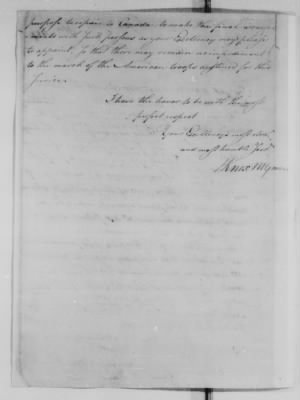 purpose to repair to Canada to make the final arrange-
ments with such persons as your Excellency may please
to appoint. So that there may remain no impediment
to the march of the American troops destined for this
service.
I have the honor to be with the most
perfect respect
Your Excellency's most obed.
and most humble Servt
HKnox MGeneral